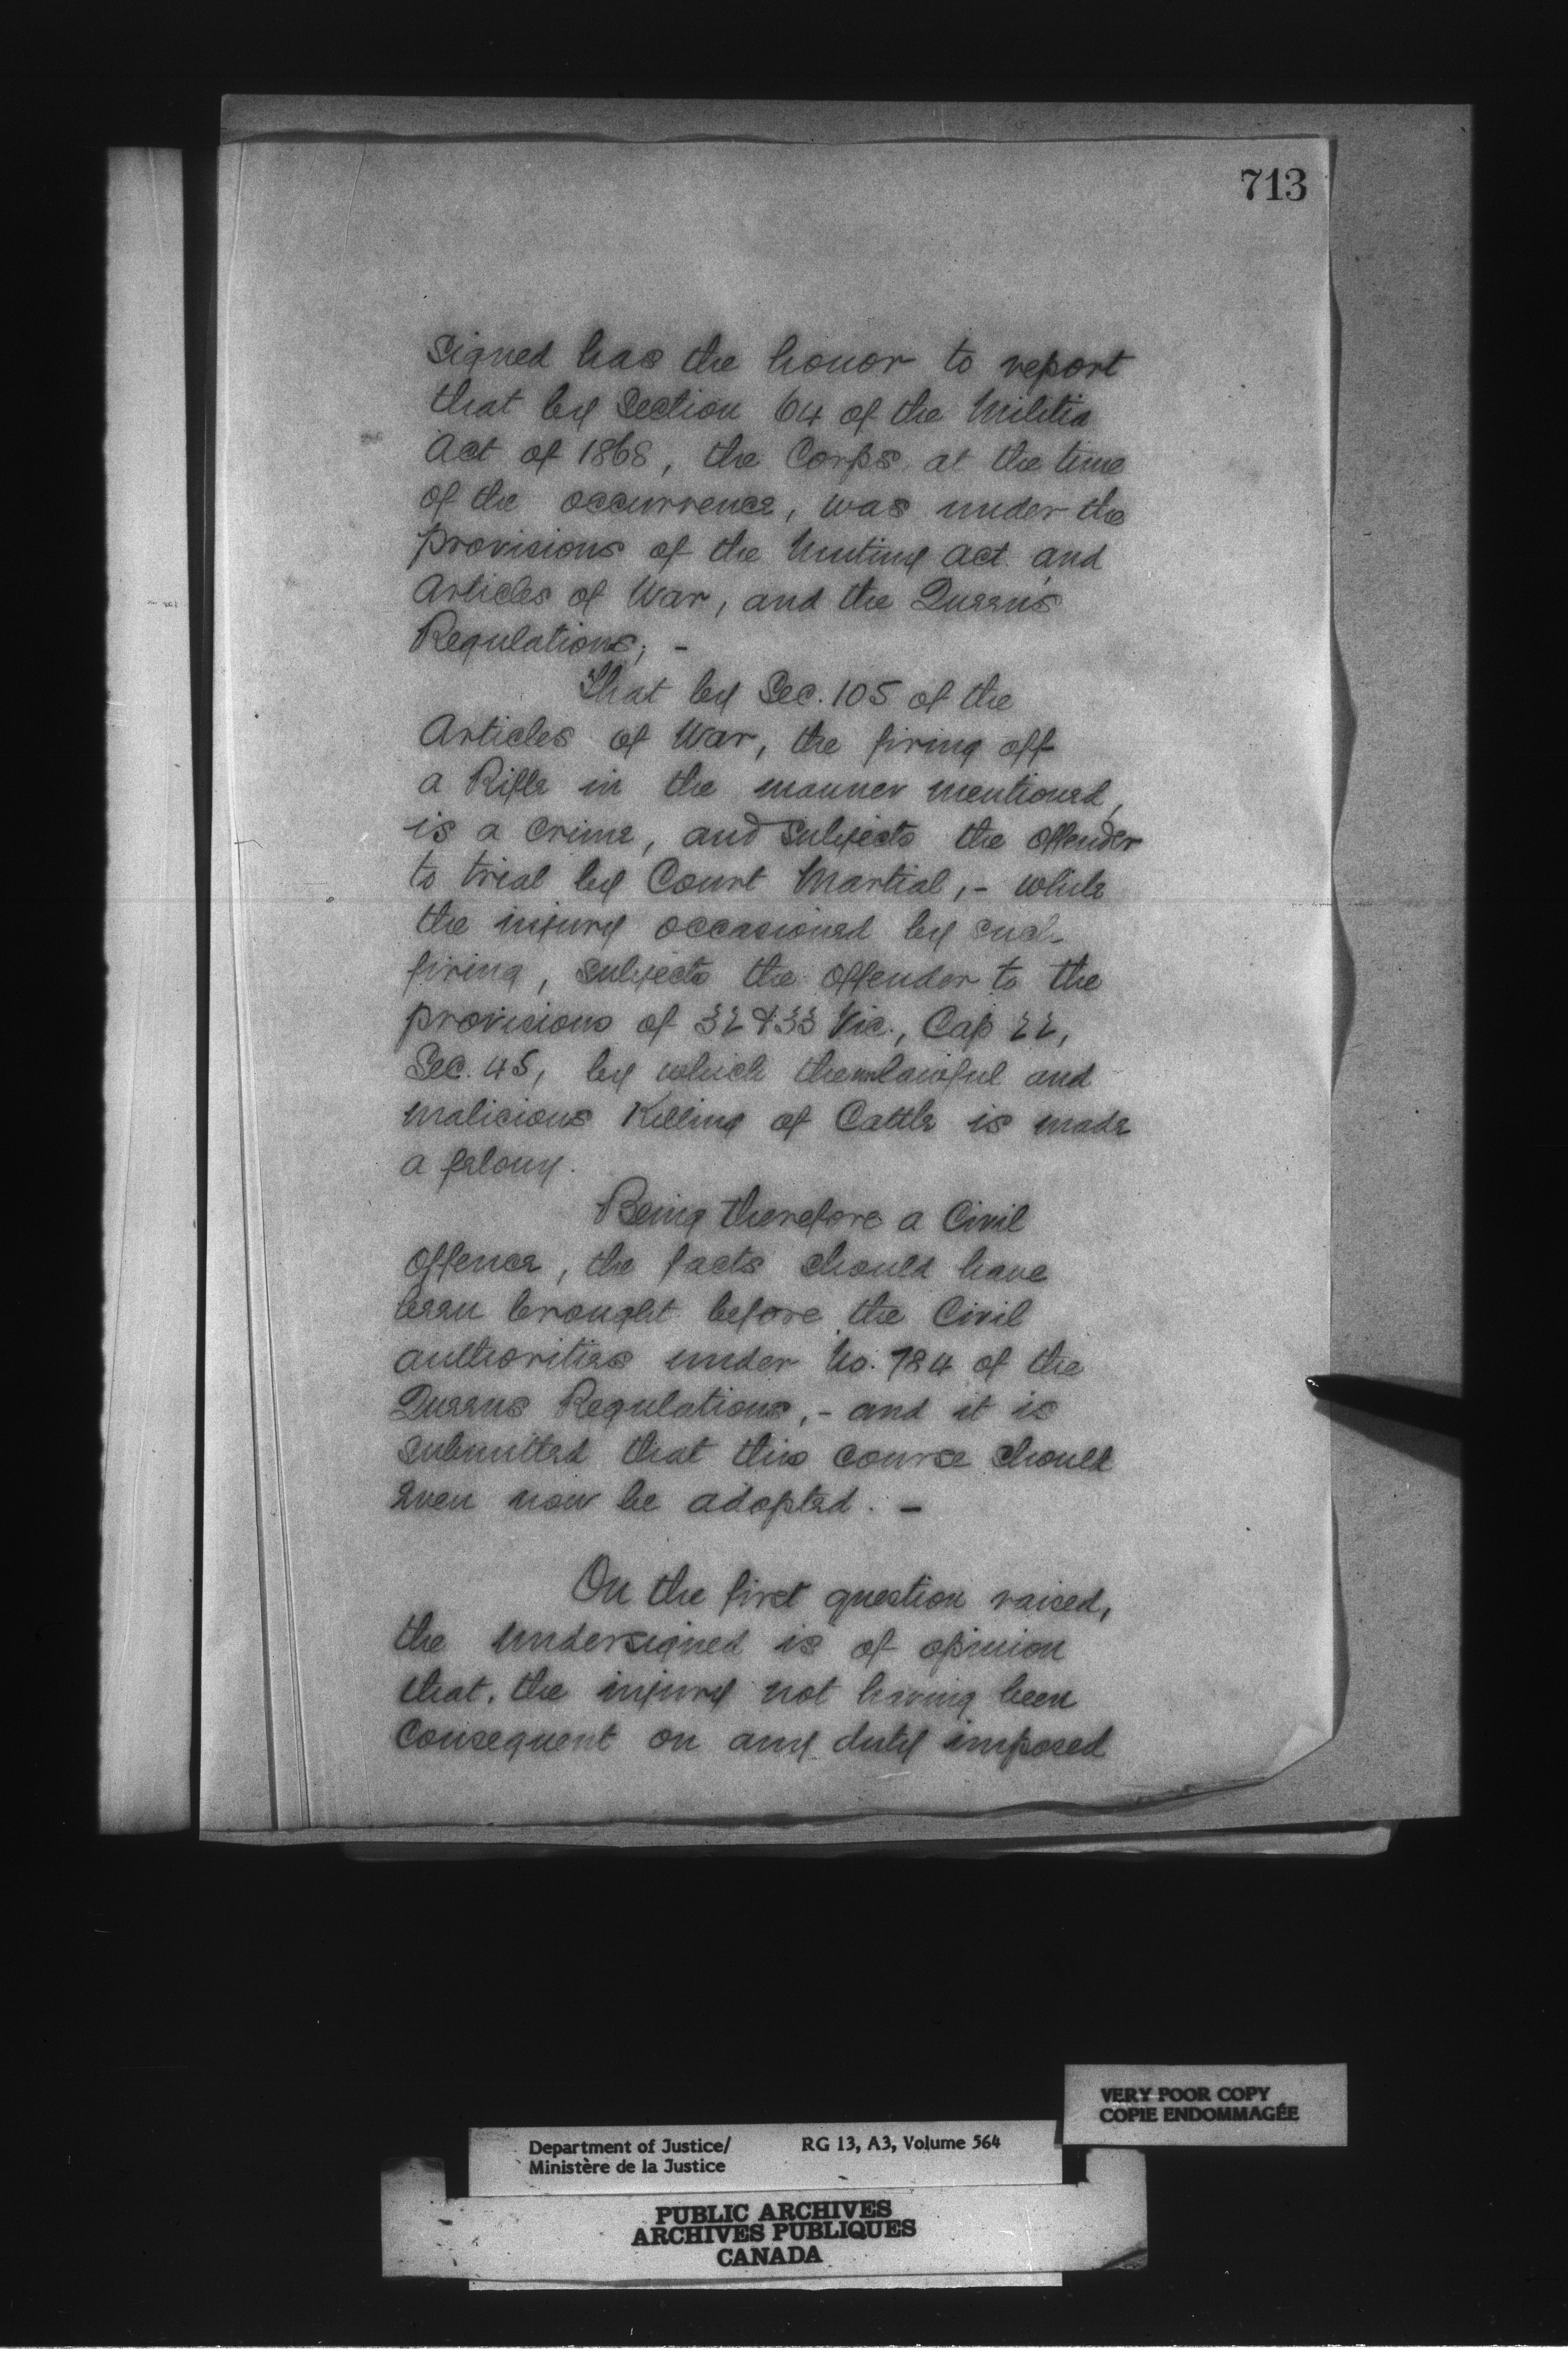 713
signed has the honor to report
that by Section 64 of the Militia
Act of 1868, the Corps at the time
of the occurrence, was under the
provisions of the Mutiny Act and
Articles of War, and the Queen's
Regulations; -
That by Sec. 105 of the
Articles of War, the firing off
a Rifle in the manner mentioned,
is a crime, and subjects the offender
to trial by Court Martial, - while
the injury occasioned by such
firing, subjects the offender to the
provisions of 32 & 33 Vic., Cap 22,
Sec. 45, by which the unlawful and
malicious Killing of Cattle is made
a felony.
Being therefore a Civil
offence, the facts should have
been brought before the Civil
authorities under No. 784 of the
Queens Regulations, - and it is
submitted that this course should
even now be adopted. -
On the first question raised,
the undersigned is of opinion
that, the injury not having been
consequent on any duty imposed
VERY POOR COPY
COPIE ENDOMMAGÉE
Department of Justice/ RG 13, A3, Volume 564
Ministère de la Justice
PUBLIC ARCHIVES
ARCHIVES PUBLIQUES
CANADA